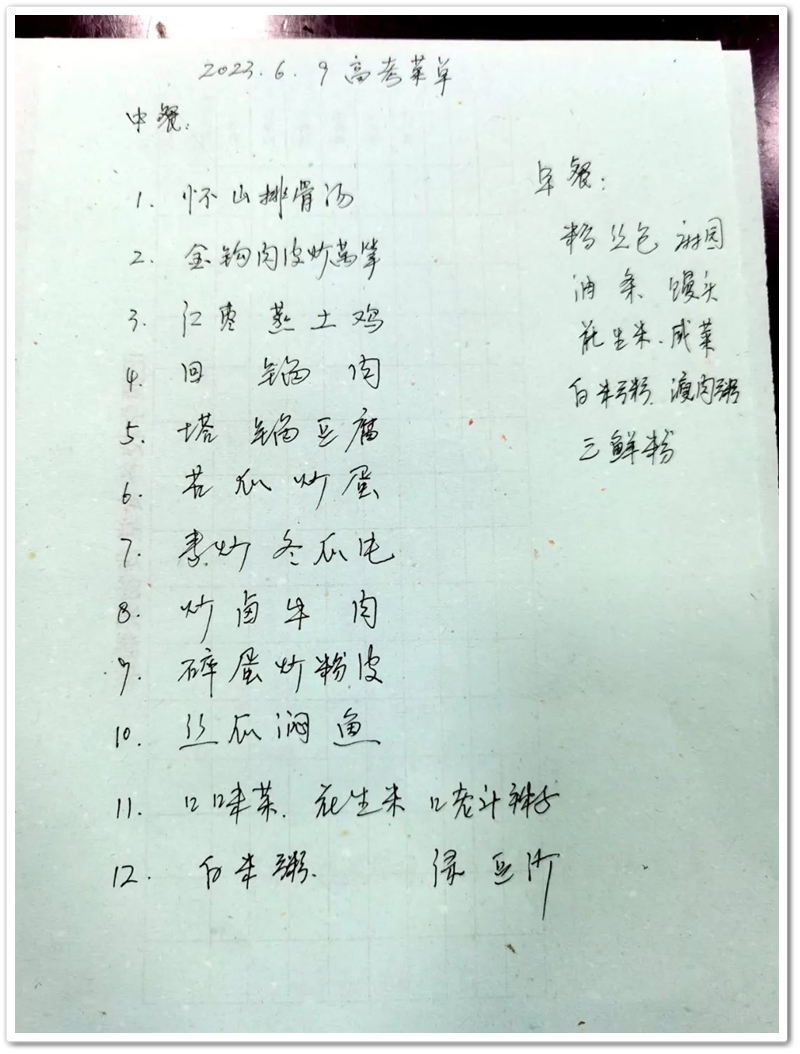 2023.6.9 高考菜单
中餐:
1. 怀山排骨汤
2. 金钩肉皮炒莴笋
3. 红枣蒸土鸡
4. 回锅肉
5. 塔锅豆腐
6. 苦瓜炒蛋
7. 素炒冬瓜
8. 炒卤牛肉
9. 碎蛋炒粉皮
10. 丝瓜焖鱼
11. 口味菜. 花生米
12. 白米粥. 绿豆沙
早餐:
粉丝包 麻园
油条 馒头
花生米. 咸菜
白米粥. 瘦肉粥
三鲜粉